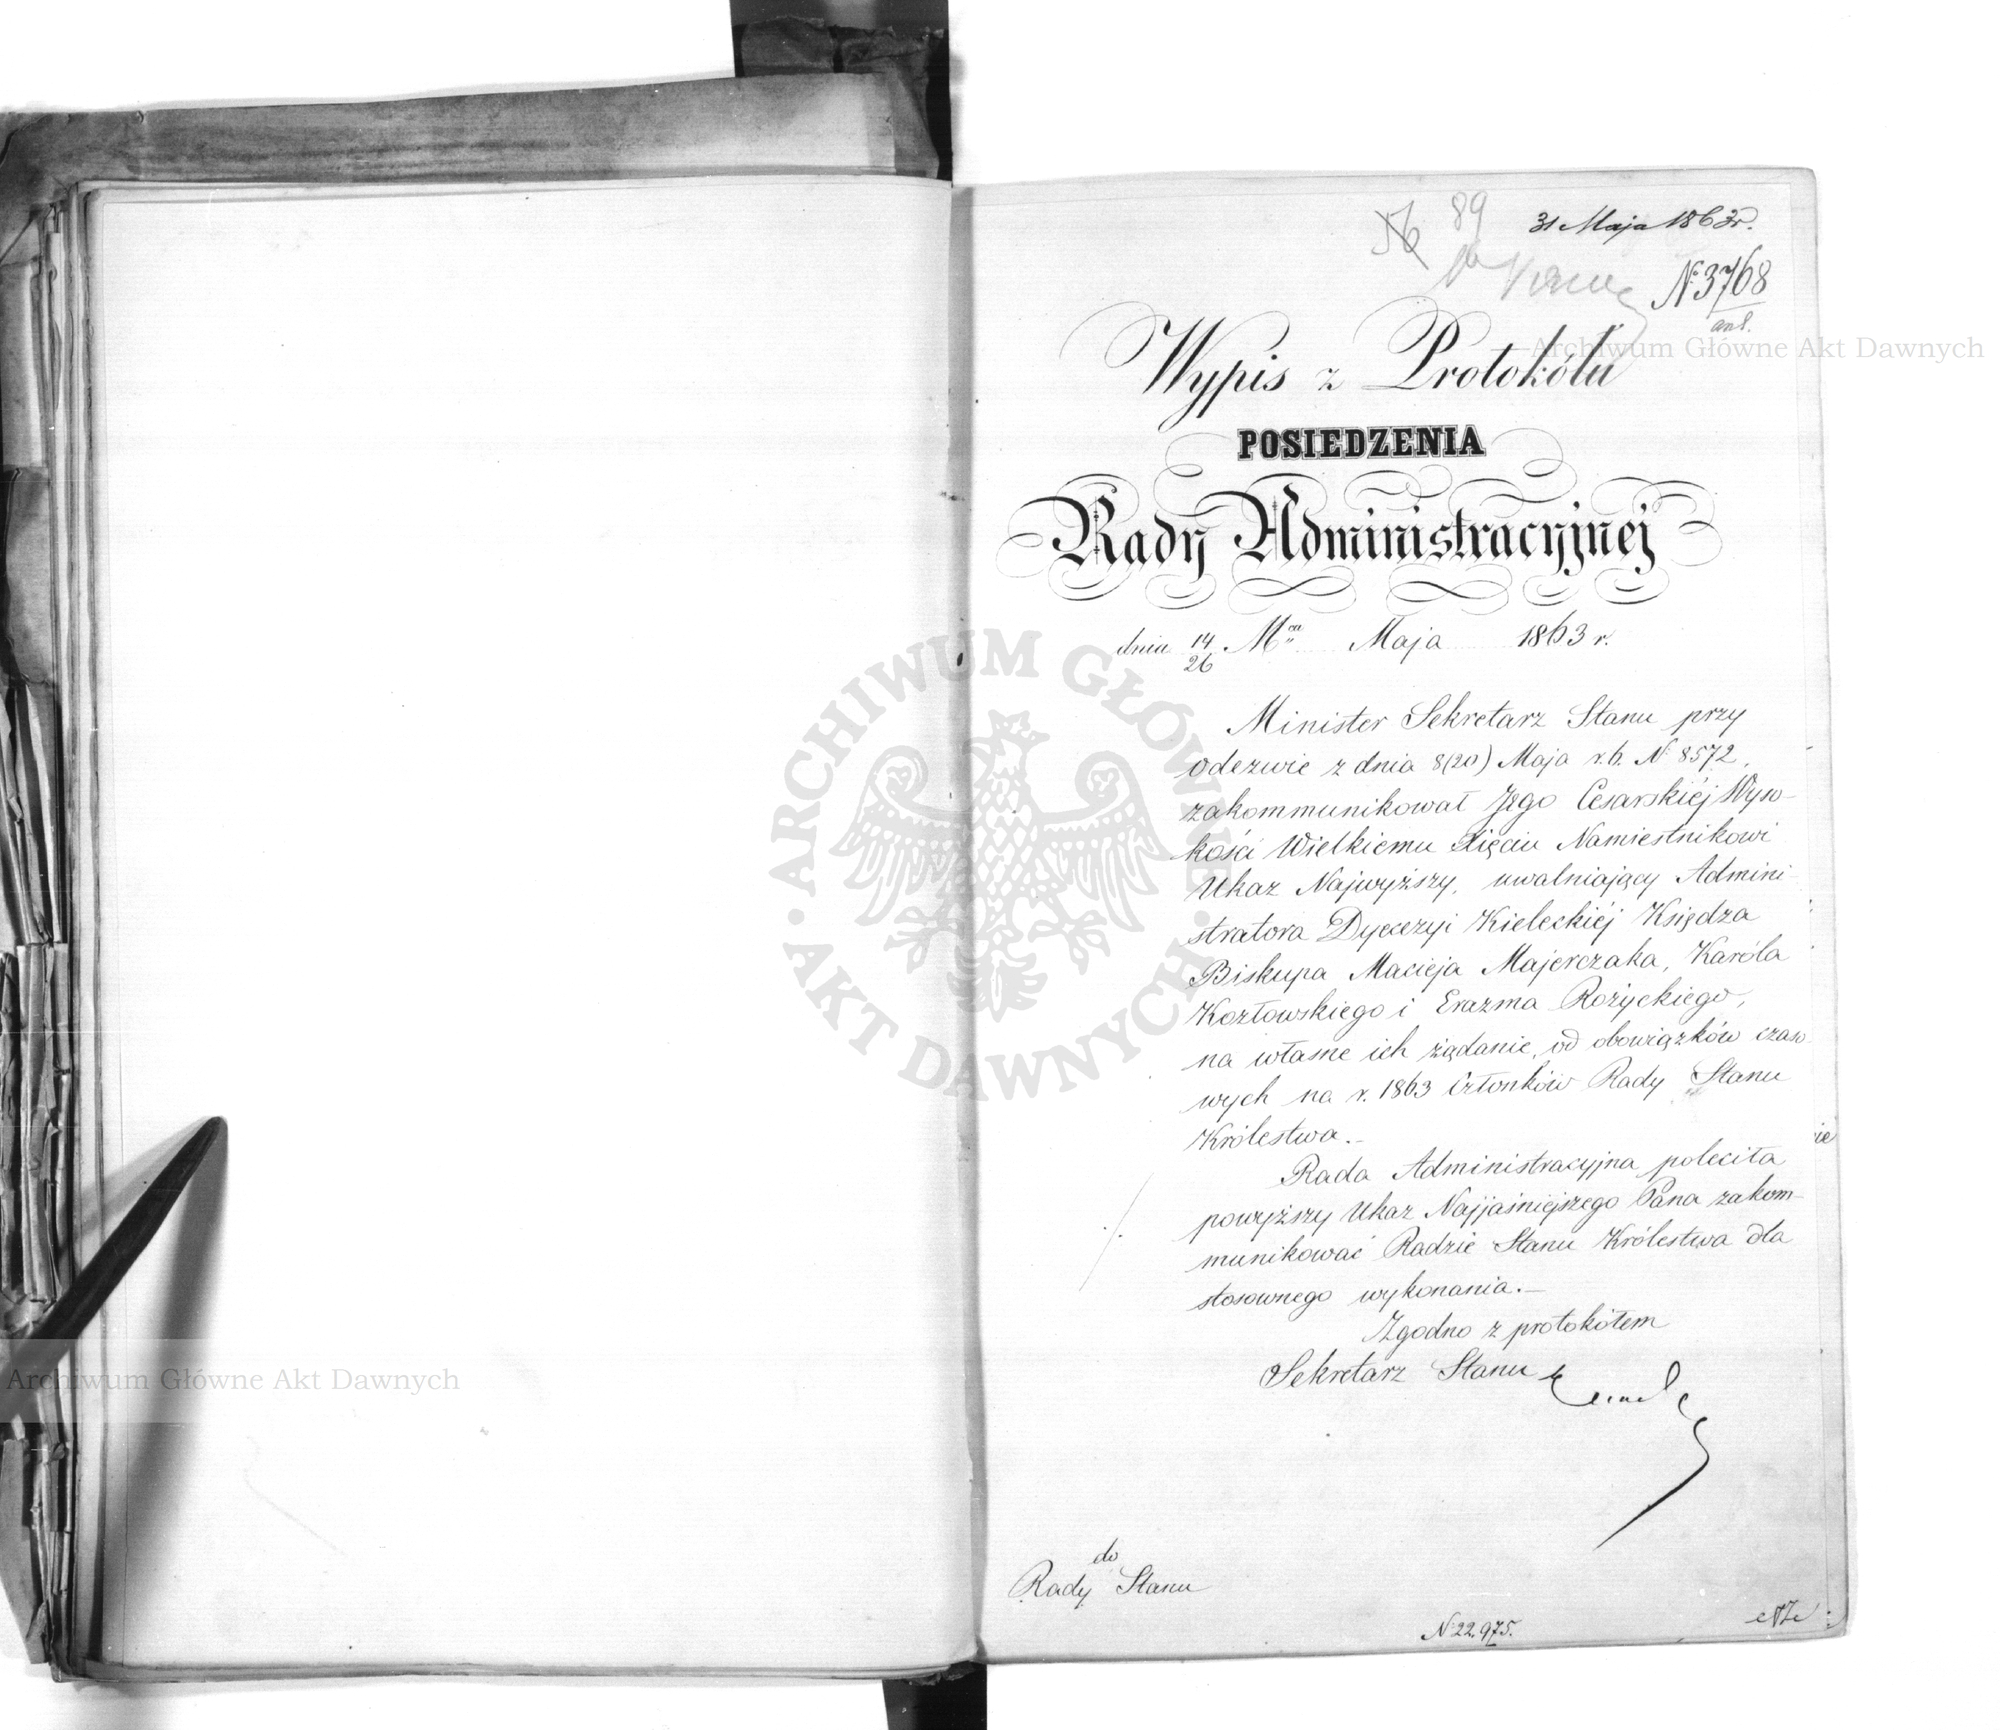 89
31 Maja 1863r.
56
N. 3768
Archiwum Główne Akt Dawnych
Wypis z Protokółu
POSIEDZENIA
Rady Administracyjnej
dnia 14/26 Mca Maja 1863 r.
Minister Sekretarz Stanu przy
odezwie z dnia 8(20) Maja r.b. N. 8572,
zakommunikował Jego Cesarskiéj Wyso-
kości Wielkiemu Xięciu Namiestnikowi
Ukaz Najwyższy, uwalniający Admini-
stratora Dyecezyi Kieleckiéj Księdza
Biskupa Macieja Majerczaka, Karóla
Kozłowskiego i Erazma Rożyckiego,
na własne ich żądanie, od obowiązków czaso-
wych na r. 1863 Członków Rady Stanu
Królestwa.-
Rada Administracyjna poleciła
powyższy Ukaz Najjaśniejszego Pana zakom-
munikować Radzie Stanu Królestwa dla
stosownego wykonania.-
Zgodno z protokółem
Sekretarz Stanu
do
Rady Stanu
N. 22,975.
ARCHIWUM GŁÓWNE AKT DAWNYCH
Archiwum Główne Akt Dawnych